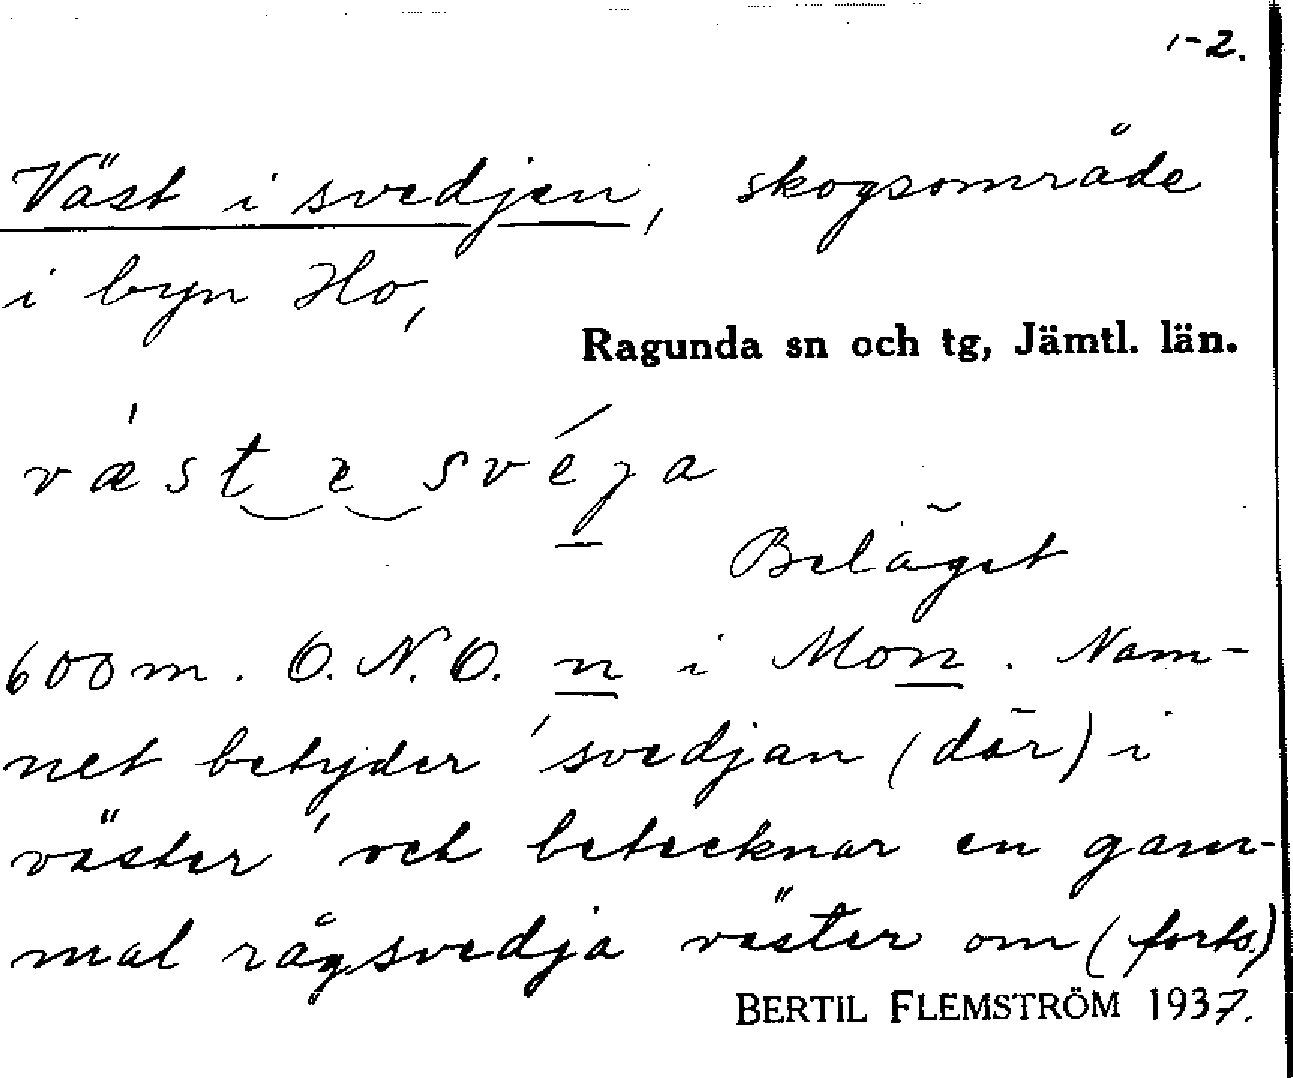 1-2.
Väst i svedjen, skogsområde
i byn Ho,
Ragunda sn och tg, Jämtl. län.
væst e svéja
Beläget
600 m. O.N.O. n i Mon. Nam-
net betyder 'svedjan (där) i
väster' och betecknar en gam-
mal rågsvedja väster om (forts.)
BERTIL FLEMSTRÖM 1937.